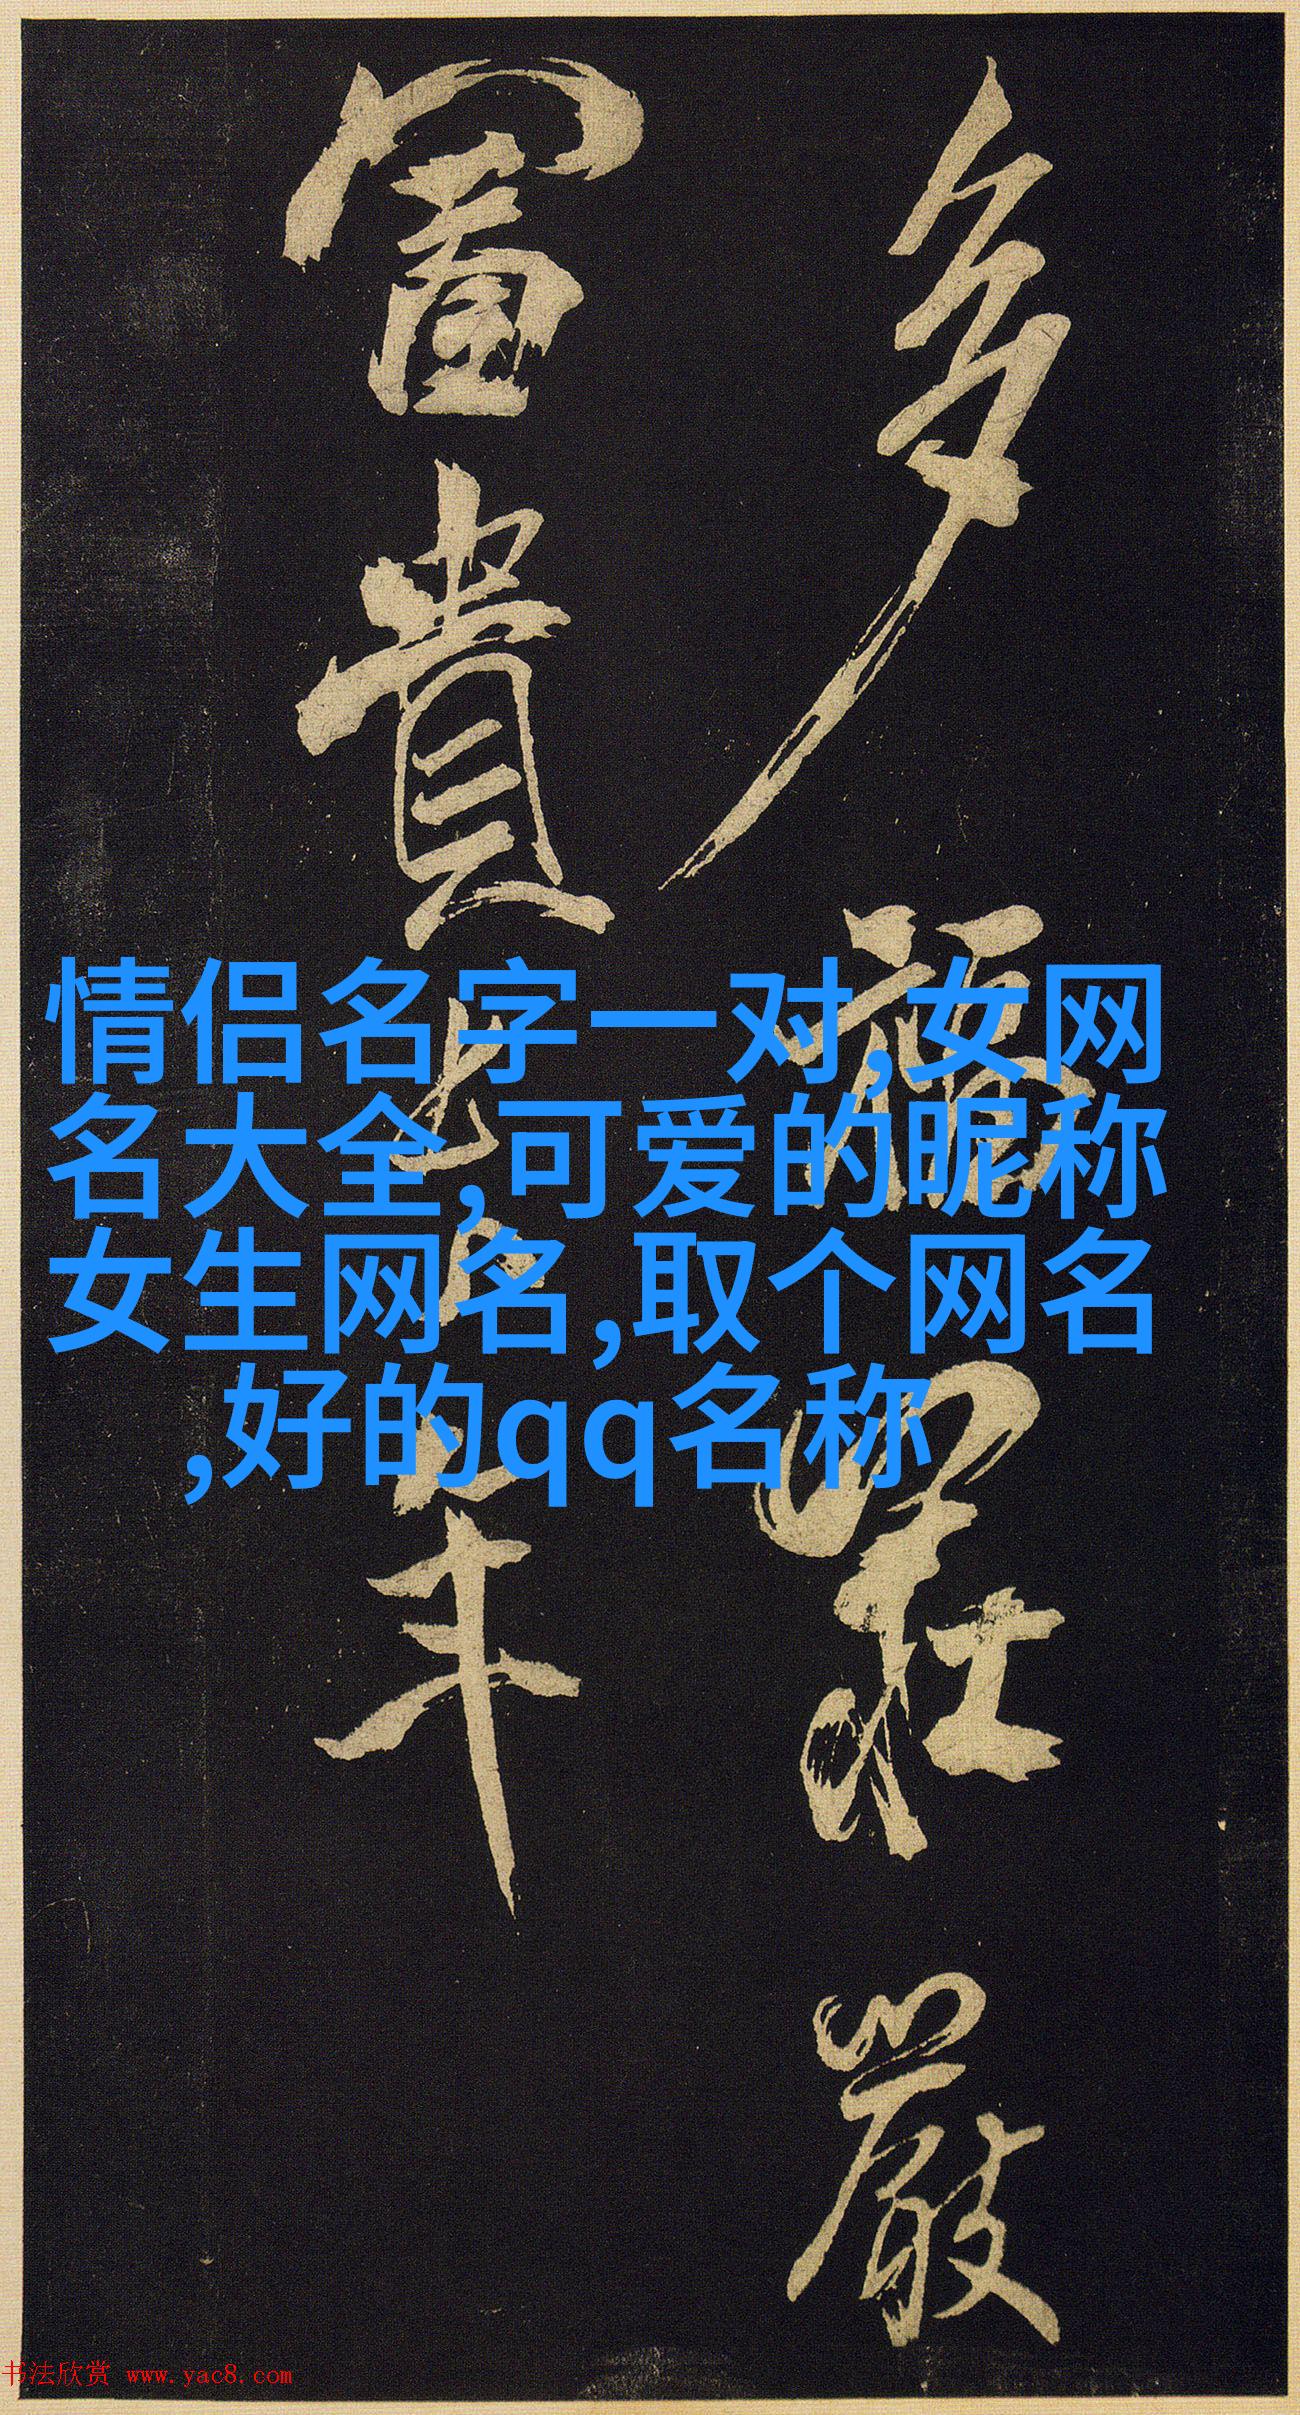 多福莊嚴
富貴
年
情侣名字一对,女网
名大全,可爱的昵称
女生网名,取个网名
,好的qq名称
书法欣赏 www.yac8.com